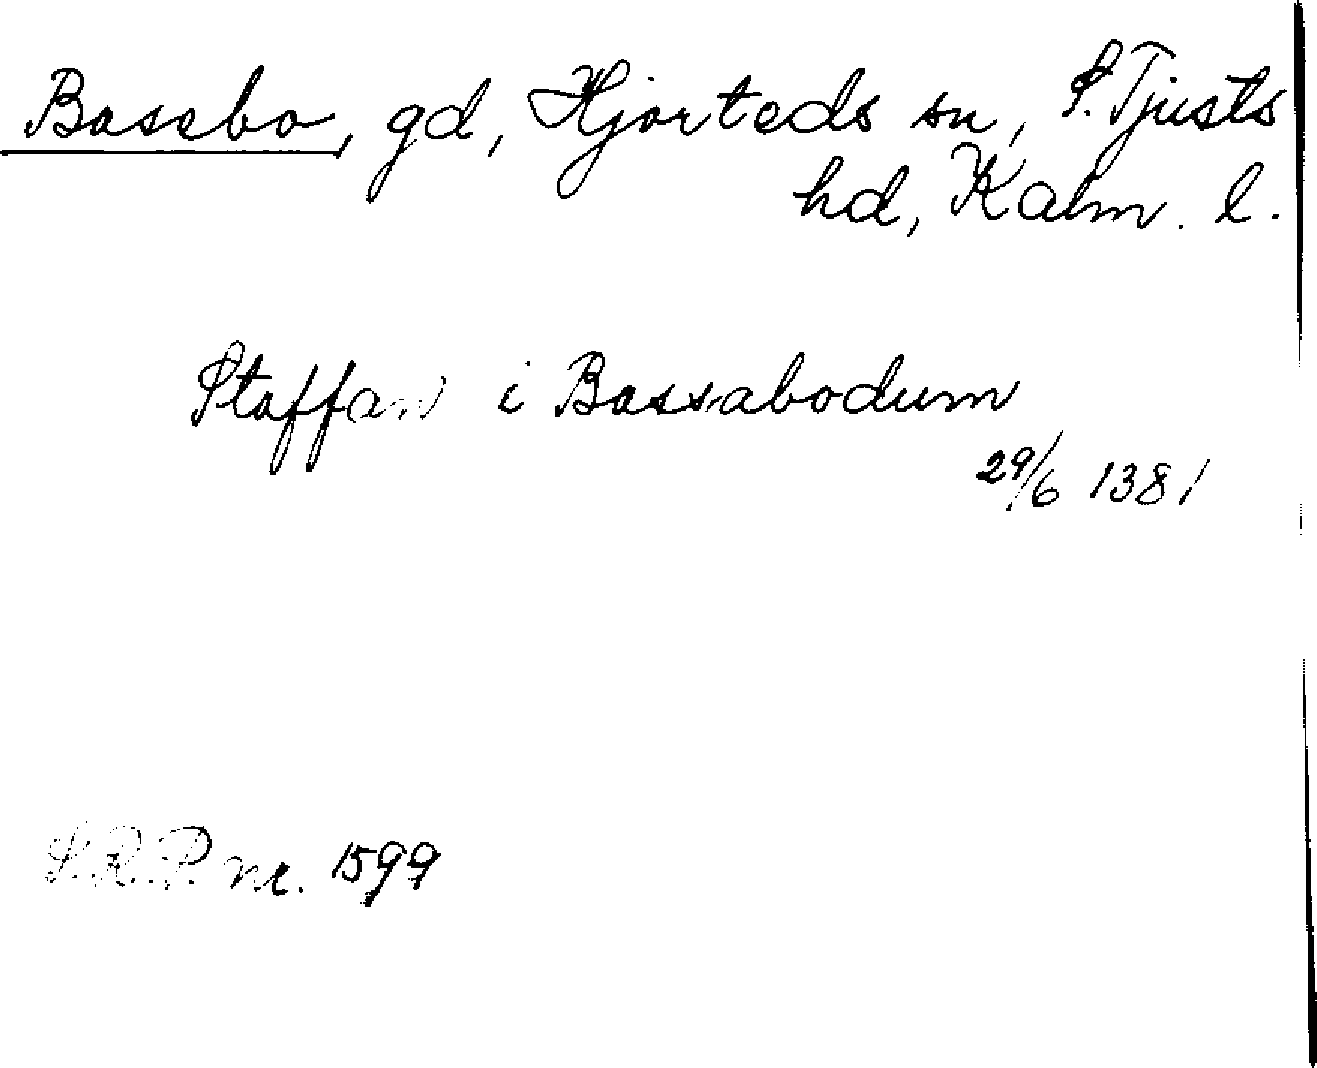 Bassebo, gd, Hjorteds sn, S. Tjusts
hd, Kalm. l.
Staffan i Bassabodum
29/6 1381
S.R.P. nr. 1599